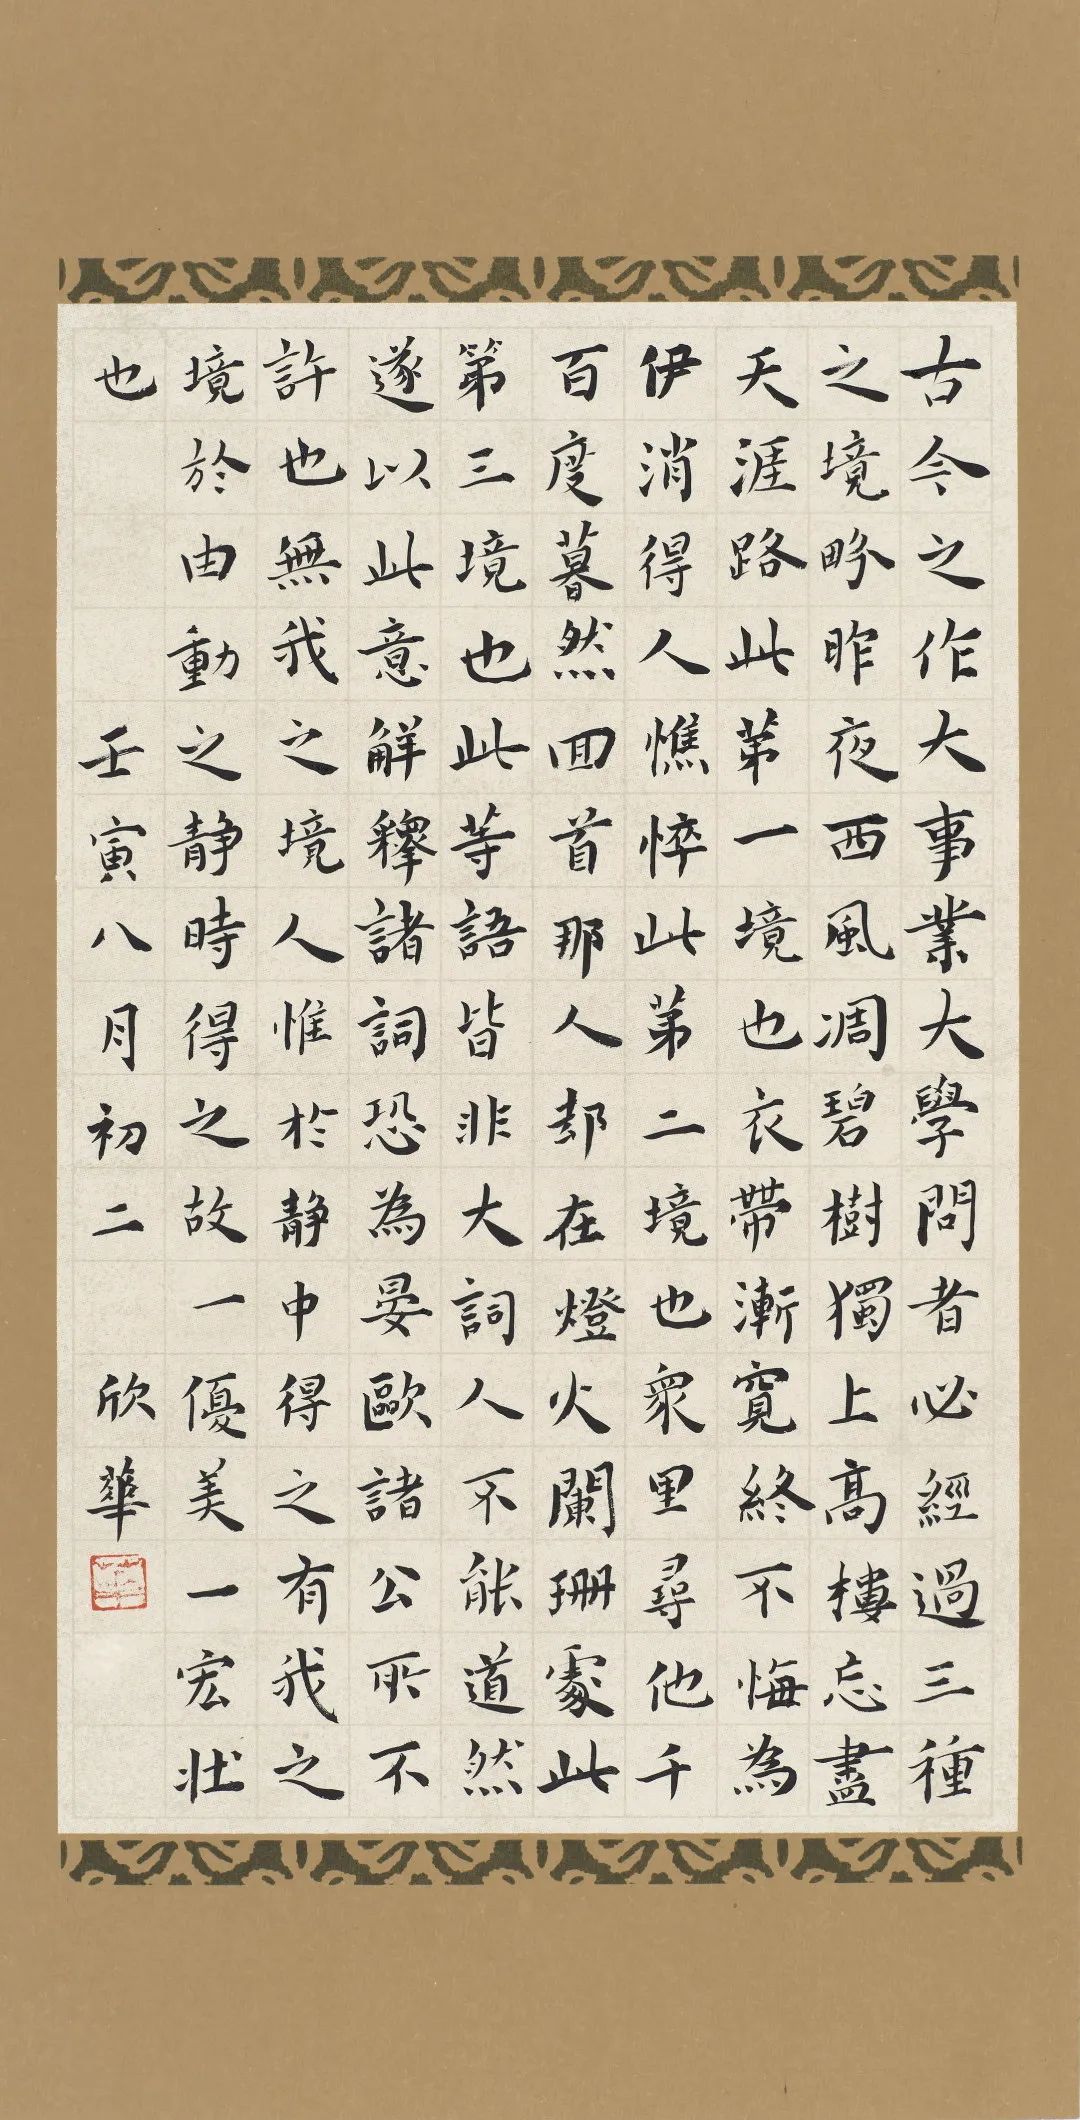 古今之作大事業大學問者必經過三種
之境畍昨夜西風凋碧樹獨上高樓忘盡
天涯路此第一境也衣帶漸寬終不悔為
伊消得人憔悴此第二境也眾里尋他千
百度暮然回首那人却在燈火闌珊處此
第三境也此等語皆非大詞人不能道然
遂以此意解釋諸詞恐為晏歐諸公所不
許也無我之境人惟於静中得之有我之
境於由動之静時得之故一優美一宏壯
也 壬寅八月初二 欣華